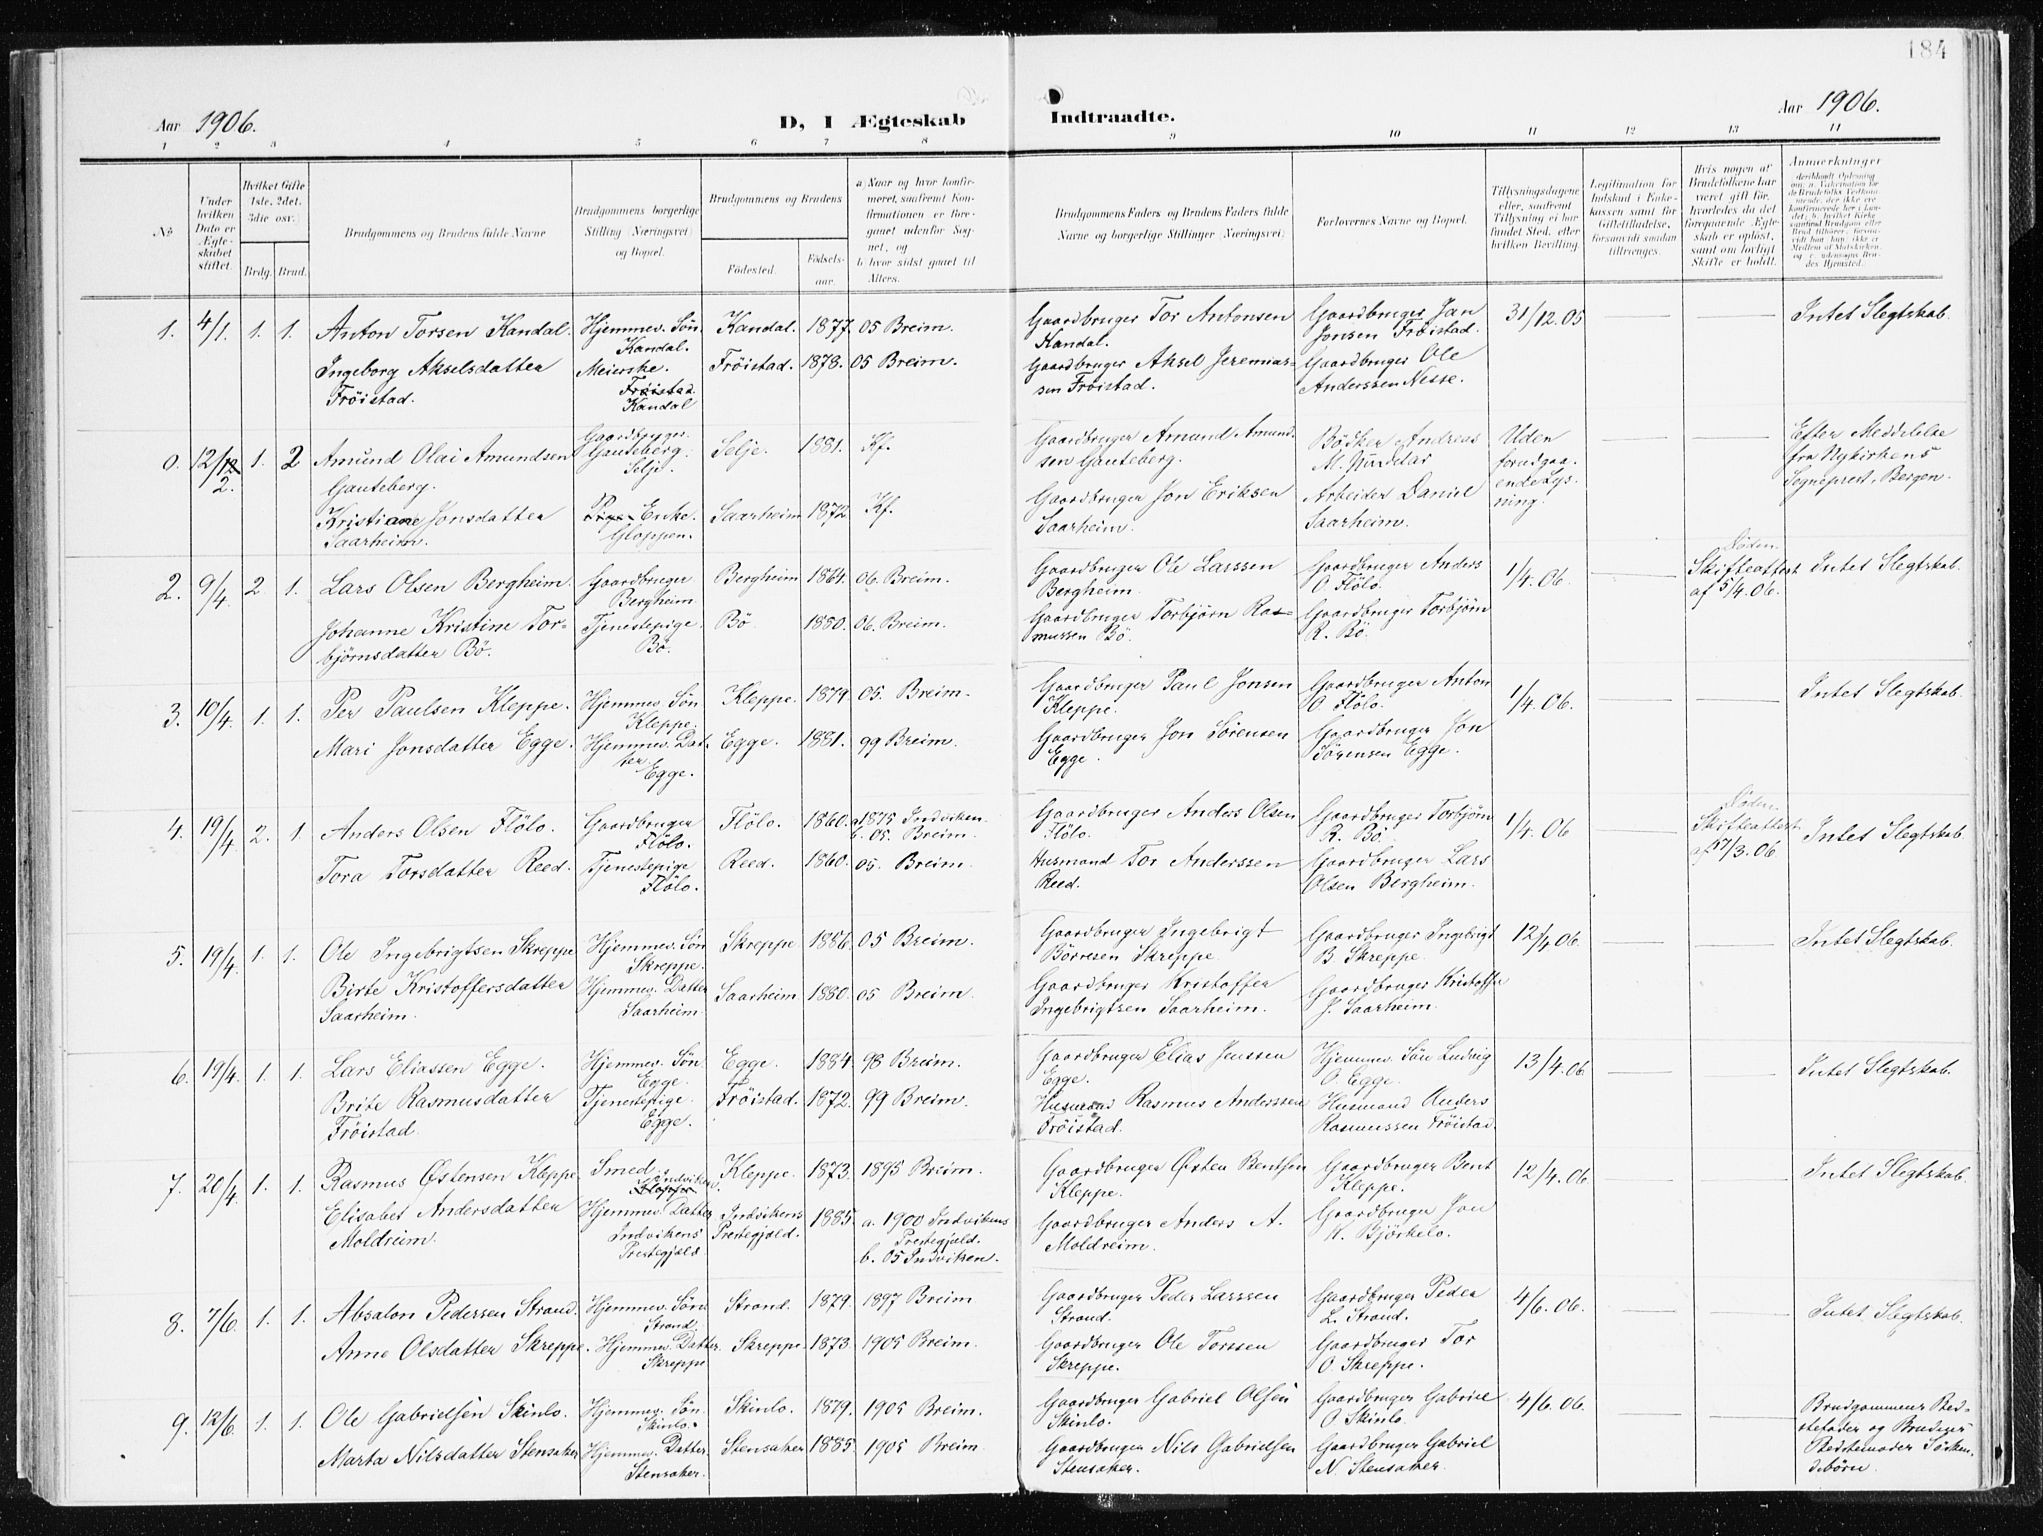 184
Aar 1906. D, 1 Ægteskab Indtraadte. Aar 1906.
1 2 3 4 5 6 7 8 9 10 11 12 13 14
No
Under hvilken Dato er Ægteskabet stiftet.
Hvilket Gifte 1ste, 2det, 3die osv.
Brdg. Brud.
Brudgommens og Brudens fulde Navne
Brudgommens borgerlige Stilling (Næringsvei) og Bopæl.
Brudgommens og Brudens
Fødested. Fødsels-aar.
a) Naar og hvor konfirmeret, saafremt Konfirmationen er foregaaet udenfor Sognet, og
b) hvor sidst gaaet til Alters.
Brudgommens Faders og Brudens Faders fulde Navne og borgerlige Stillinger (Næringsvei)
Forlovernes Navne og Bopæl.
Tillysningsdagene eller, saafremt Tillysning ei har fundet Sted, efter hvilken Bevilling.
Legitimation for Indskud i Enkekassen samt for Giftetilladelse, forsaavidt saadan tiltrænges.
Hvis nogen af Brudefolkene har været gift før, hvorledes da det foregaaende Ægteskab er opløst, samt om lovligt Skifte er holdt.
Anmerkninger
1. 4/1. 1. 1. Anton Torsen Kandal. Hjemmev. Søn Kandal. Kandal. 1877. 05 Breim. Gaardbruger Tor Antonsen Kandal. Gaardbruger Jan Jonsen Frøistad. 31/12.05 Intet Slegtskab.
Ingeborg Akselsdatter Frøistad. Meierske. Frøistad Kandal Frøistad. 1878. 05 Breim. Gaardbruger Aksel Jeremiassen Frøistad. Gaardbruger Ole Anderssen Nesse.
0. 12/12 2. 1. 2 Amund Olai Amundsen Gauteberg. Gaardbruger. Gauteberg. Selje. Selje. 1881. Kf. Gaardbruger Amund Amundsen Gauteberg. Bødker Andreas M. Uden forudgaaende Lysning. Efter Meddelelse fra Nykirkens Sogneprest, Bergen.
Kristiane Jonsdatter Saarheim. Pige Enke. Gloppen. Saarheim 1872 Kf. Gaardbruger Jon Eriksen Saarheim. Arbeider Daniel Saarheim.
2. 9/4. 2. 1. Lars Olsen Bergheim. Gaardbruger Bergheim Bergheim 1864. 06. Breim. Gaardbruger Ole Larssen Bergheim. Gaardbruger Anders O. Flölo. 1/4. 06. Døden. Skifteattest af 5/4.06. Intet Slegtskab.
Johanne Kristine Torbjørnsdatter Bö. Tjenestepige. Bö. Bö 1880. 06. Breim. Gaardbruger Torbjørn Rasmussen Bö. Gaardbruger Torbjørn R. Bö.
3. 10/4. 1. 1. Per Paulsen Kleppe. Hjemmev. Søn Kleppe. Kleppe. 1879. 05. Breim. Gaardbruger Paul Jonsen Kleppe. Gaardbruger Anton O. Flölo. 1/4. 06. Intet Slegtskab.
Mari Jonsdatter Egge. Hjemmev. Datter Egge. Egge. 1881. 99 Breim. Gaardbruger Jon Sørensen Egge. Gaardbruger Jon Sørensen Egge.
4. 19/4. 2. 1. Anders Olsen Flölo. Gaardbruger Flölo. Flölo. 1860. a 1875 Indviken. b. 05. Breim. Gaardbruger Anders Olsen Flölo. Gaardbruger Torbjørn R. Bö. 1/4. 06 Døden. Skifteattest af 17/3.06. Intet Slegtskab
Tora Torsdatter Reed. Tjenestepige Flölo. Reed. 1860. 05. Breim. Husmand Tor Anderssen Reed. Gaardbruger Lars Olsen Bergheim.
5. 19/4. 1. 1. Ole Ingebrigtsen Skreppe Hjemmev. Søn Skreppe. Skreppe 1886. 05 Breim. Gaardbruger Ingebrigt Børresen Skreppe. Gaardbruger Ingebrigt B. Skreppe. 12/4 06. Intet Slegtskab.
Birte Kristoffersdatter Saarheim. Hjemmev. Datter Saarheim. Saarheim 1880. 05 Breim. Gaardbruger Kristoffer Ingebrigtsen Saarheim. Gaardbruger Kristoffer J. Saarheim.
6. 19/4. 1. 1. Lars Eliassen Egge. Hjemmev. Søn Egge. Egge. 1884. 98 Breim. Gaardbruger Elias Jenssen Egge. Hjemmev. Søn Ludvig O. Egge. 13/4.06. Intet Slegtskab.
Brite Rasmusdatter Frøistad. Tjenestepige. Egge. Frøistad. 1872. 99 Breim. Husmand Rasmus Anderssen Frøistad. Husmand Anders Rasmussen Frøistad.
7. 20/4. 1. 1. Rasmus Østensen Kleppe. Smed. Indviken. Kleppe. Kleppe. 1873. 1895 Breim. Gaardbruger Østen Bentsen Kleppe. Gaardbruger Bent Kleppe. 12/4.06. Intet Slegtskab.
Elisabet Andersdatter Moldreim. Hjemmev. Datter Indvikens Prestegjæld Indvikens Prestegjæld. 1885. a. 1900 Indvikens Prestegjæld. b. 05 Indviken. Gaardbruger Anders A. Moldreim. Gaardbruger Jon K. Bjørkelo.
8. 7/6. 1. 1. Absalon Pedersen Strand. Hjemmev. Søn Strand. Strand. 1879. 1897 Breim Gaardbruger Peder Larssen Strand. Gaardbruger Peder L. Strand. 4/6.06. Intet Slegtskab.
Anne Olsdatter Skreppe. Hjemmev. Datter Skreppe Skreppe. 1873. 1905 Breim. Gaardbruger Ole Torssen Skreppe. Gaardbruger Tor O. Skreppe.
9. 12/6. 1. 1. Ole Gabrielsen Skinlo. Hjemmev. Søn Skinlo. Skinlo. 1879. 1905 Breim. Gaardbruger Gabriel Olsen Skinlo. Gaardbruger Gabriel O Skinlo. 4/6.06. Brudgommens Bedstefader og Brudens Bedstemoder Søskendebørn.
Marta Nilsdatter Stensaker Hjemmev. Datter Stensaker. Stensaker 1885. 1905 Breim Gaardbruger Nils Gabrielsen Stensaker. Gaardbruger Gabriel N. Stensaker